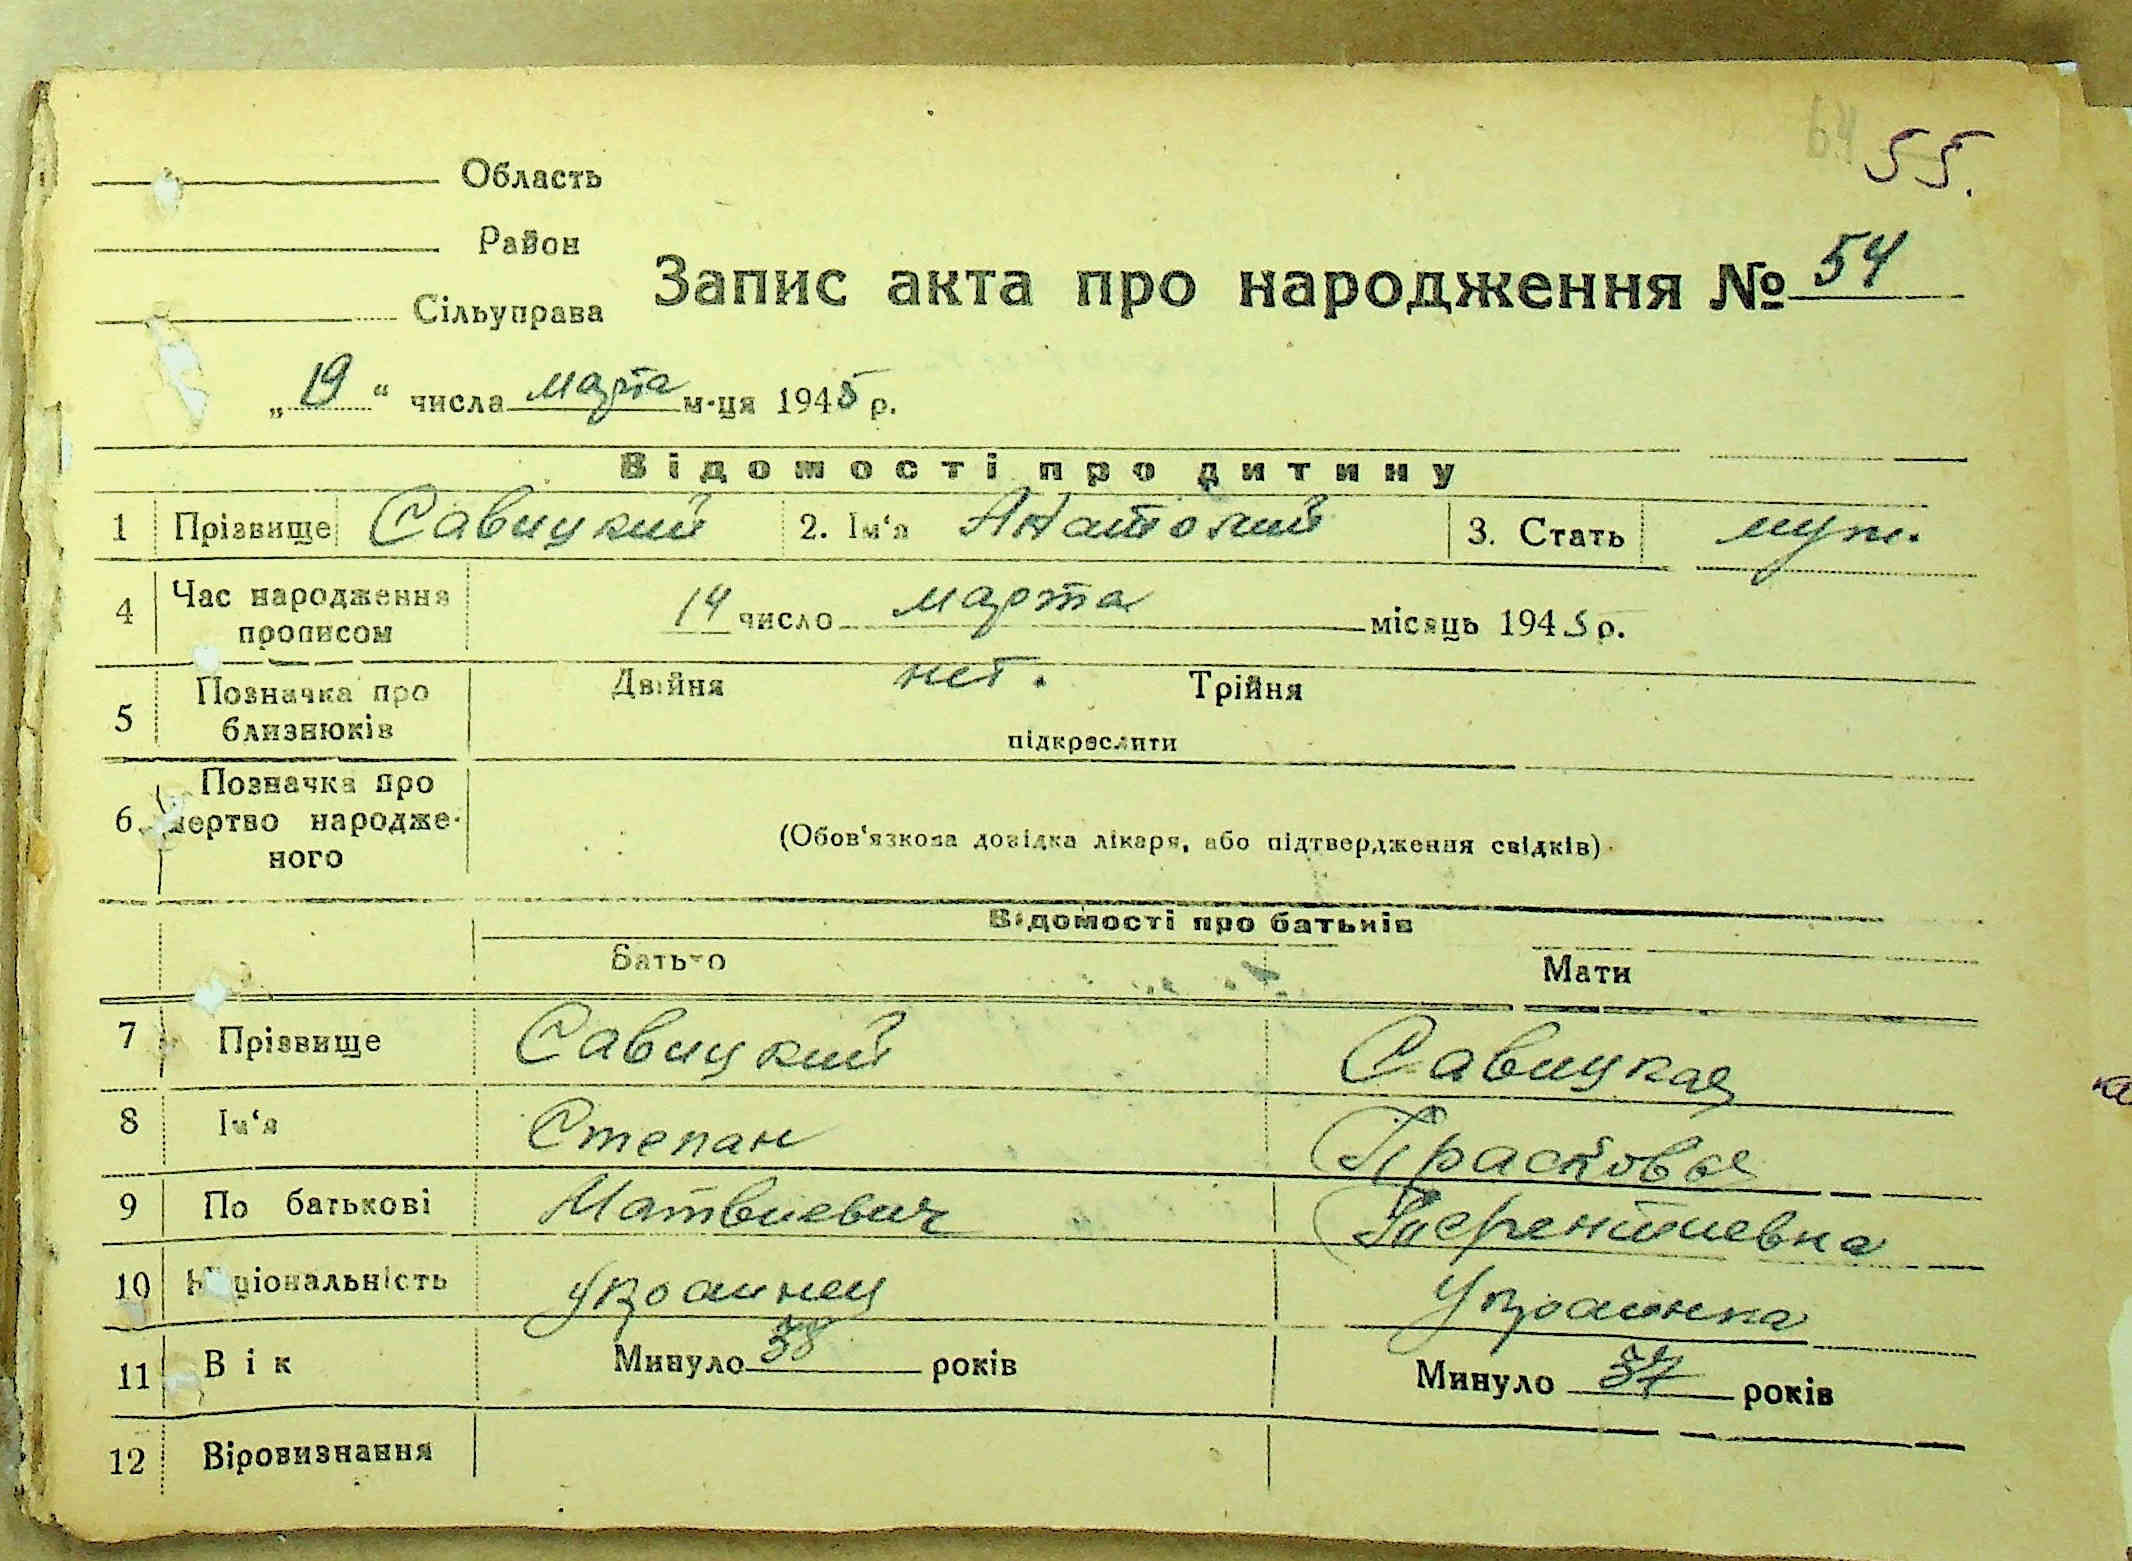 64 55.
Область
Район
Сільуправа
Запис акта про народження № 54
„19“ числа марта м-ця 1945 р.
Відомості про дитину
1 Прізвище Савицкий 2. Ім‘я Анатолий 3. Стать муж.
4 Час народження прописом 14 число марта місяць 1945 р.
5 Позначка про близнюків Двійня нет. Трійня
підкреслити
6 Позначка про мертво народже-
ного
(Обов‘язкова довідка лікаря, або підтвердження свідків)
Відомості про батьків
Батько Мати
7 Прізвище Савицкий Савицкая
8 Ім‘я Степан Прасковья
9 По батькові Матвиевич Терентиевна
10 Національність украинец Украинка
11 Вік Минуло 38 років Минуло 37 років
12 Віровизнання